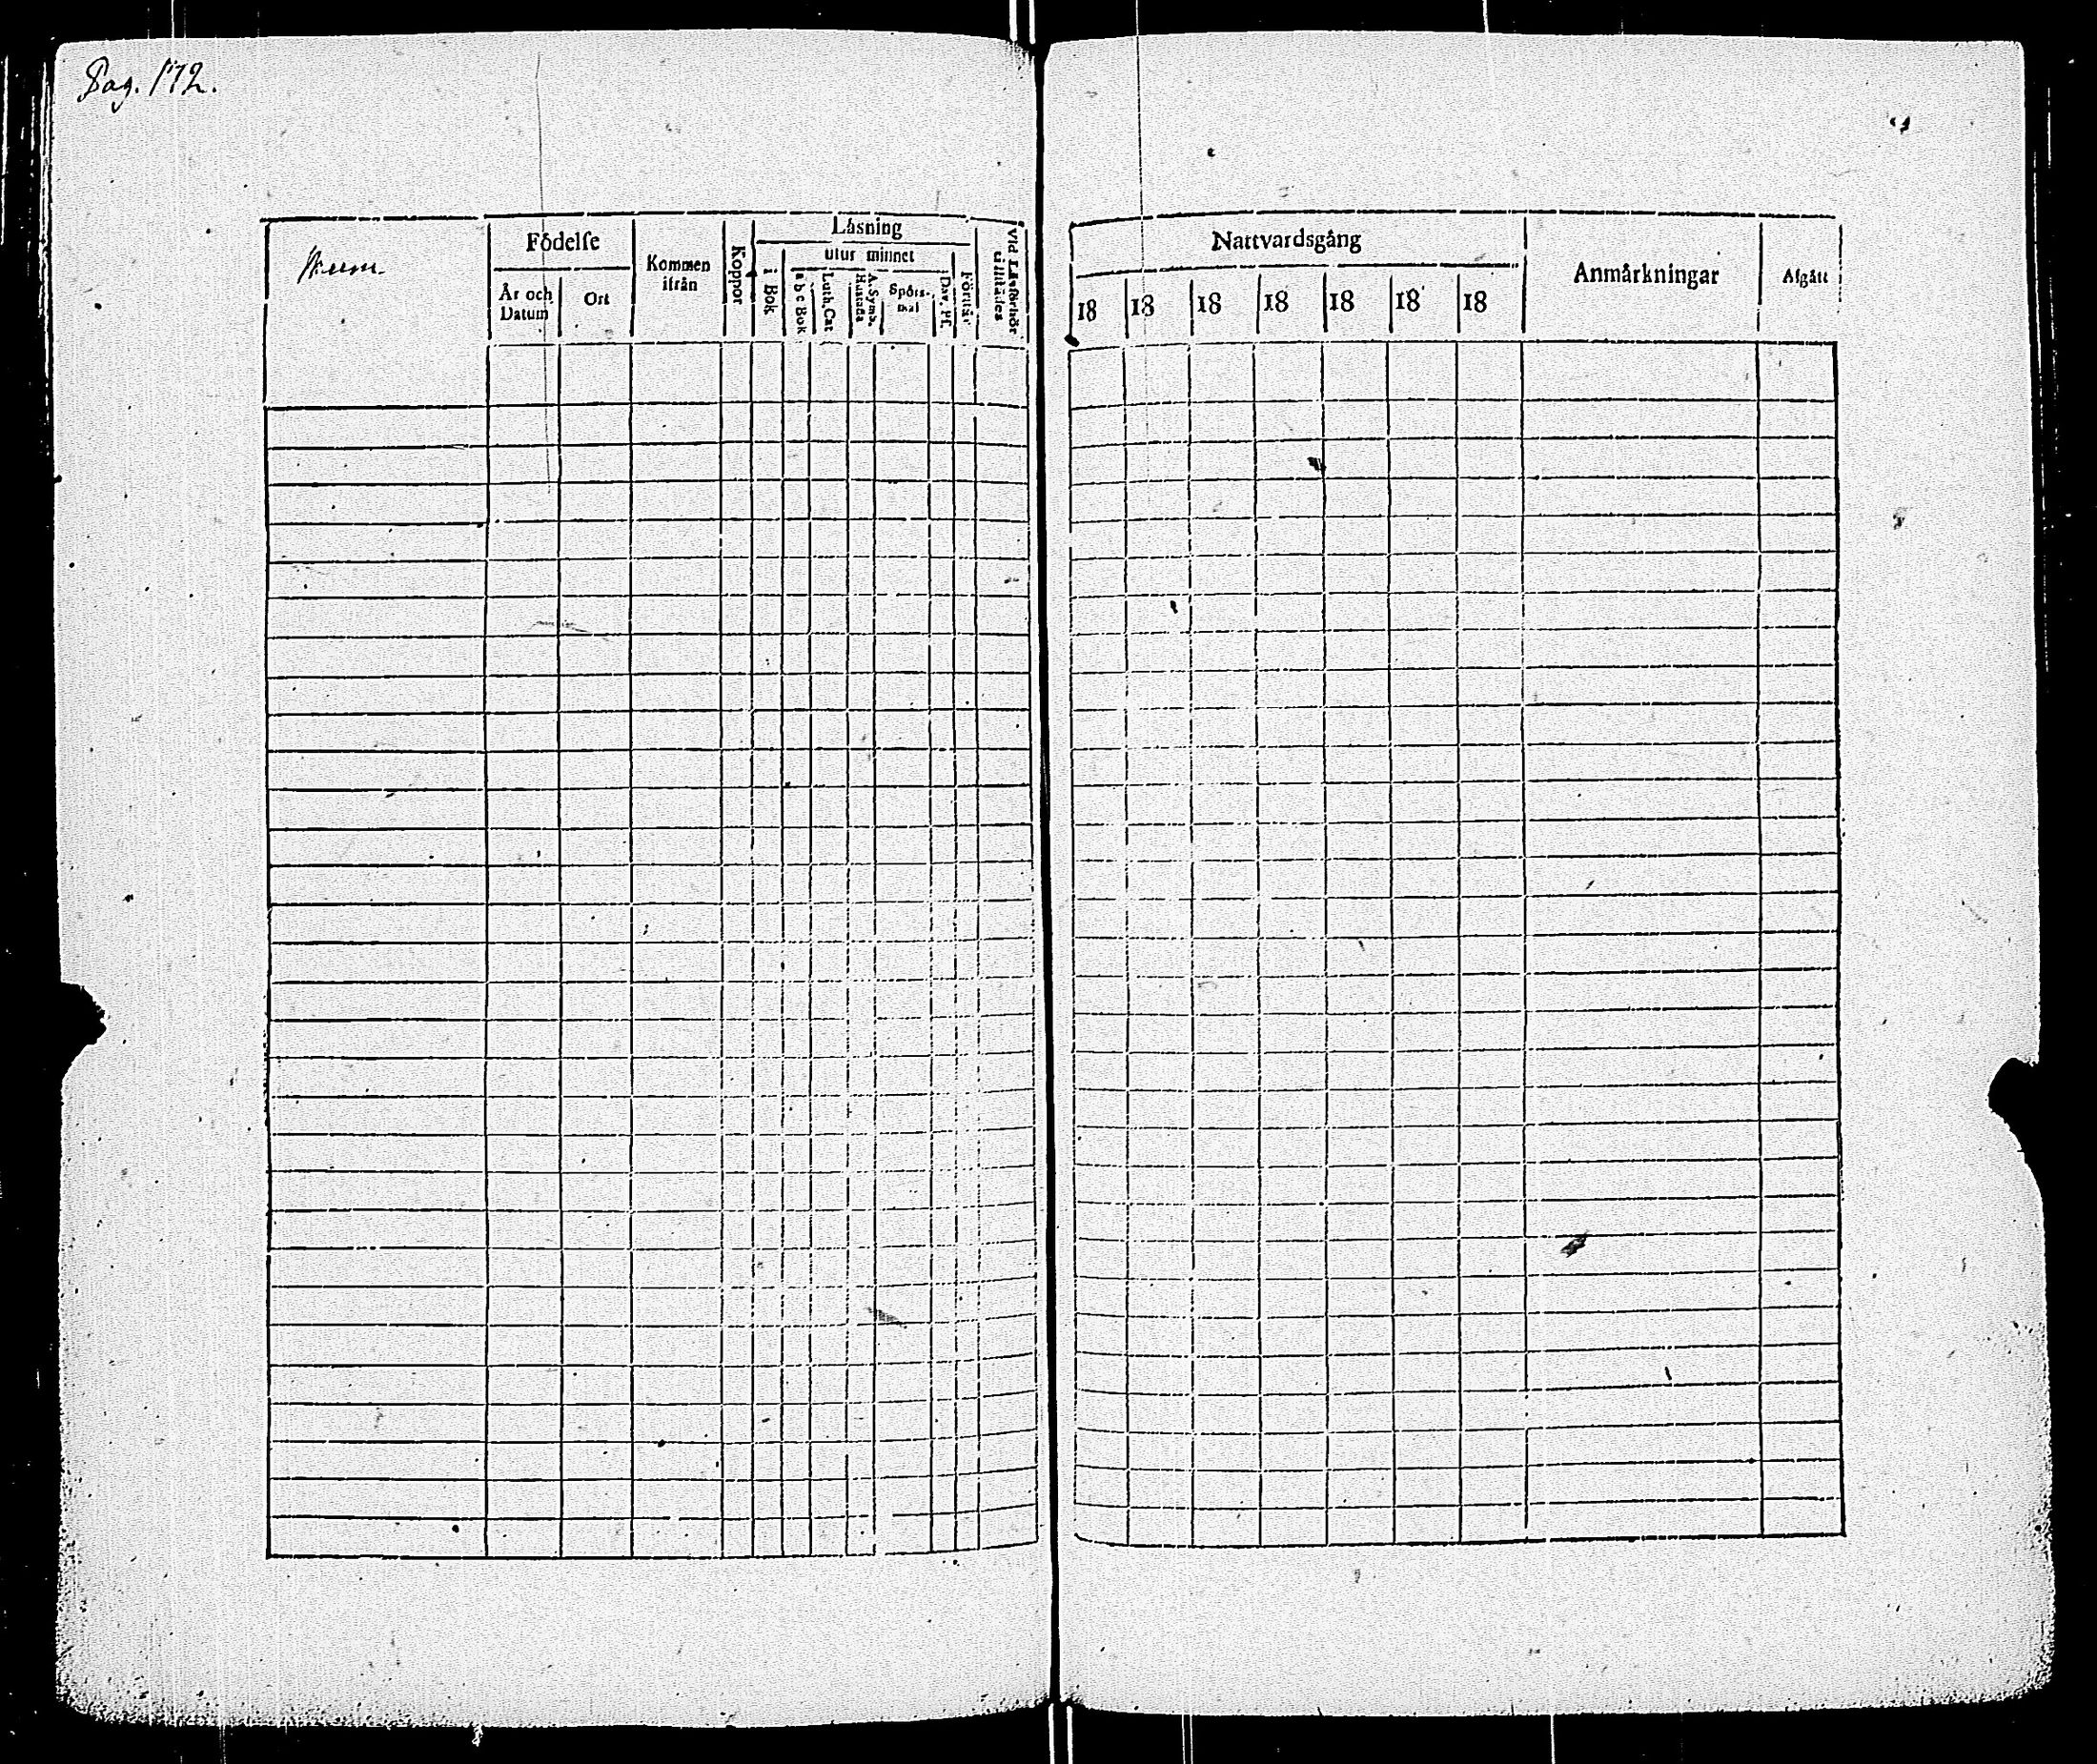 Pag. 172.
Födelſe
År och Datum
Ort
Kommen ifrån
Koppor
Läsning
i Bok
utur minnet
a b c Bok
Luth. Cat
A. Symb.
Hustafla
Spörs-
mål
Dav. Pſ.
Förstår
Vid Läsförhör
tillstädes
Nattvardsgång
18 18 18 18 18 18 18
Anmärkningar
Afgått